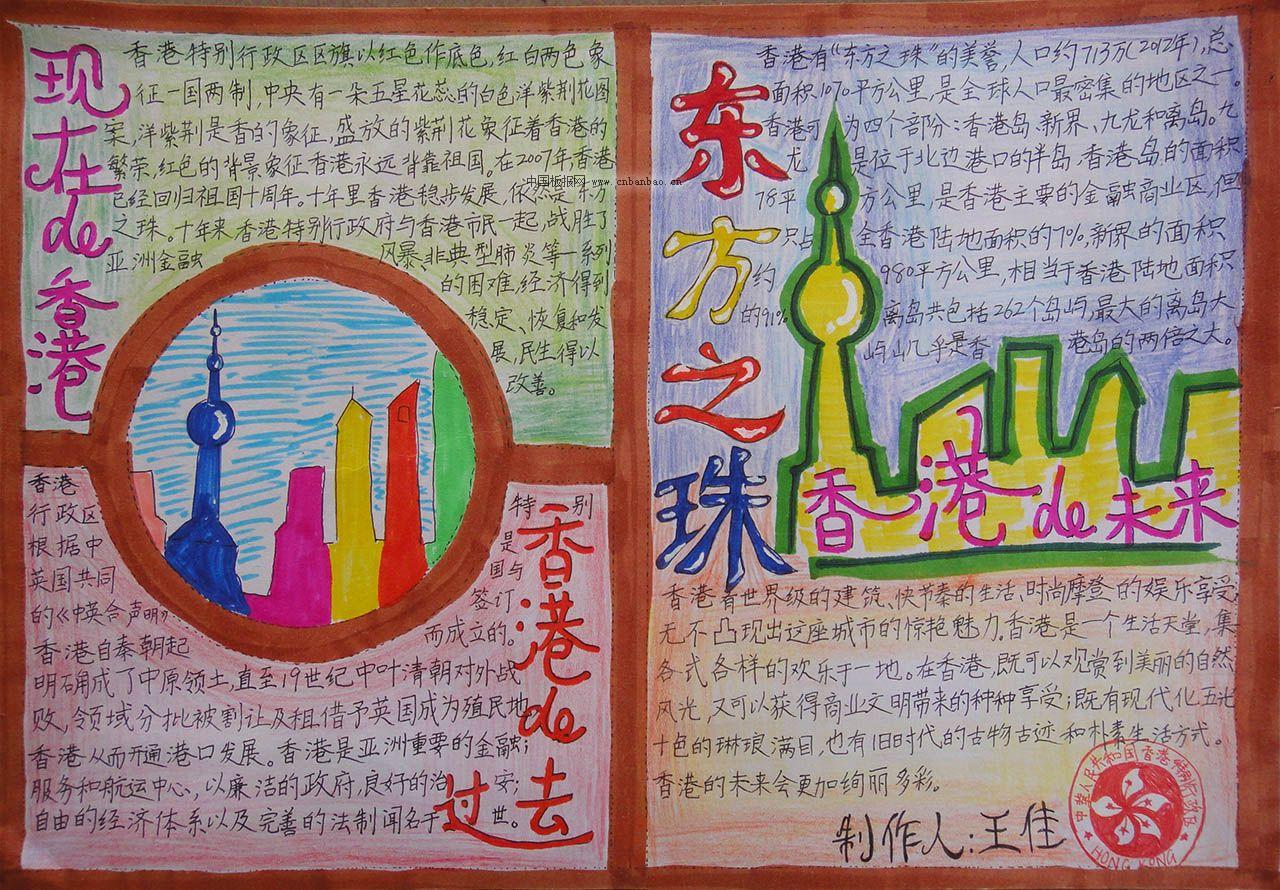 现在de香港
香港特别行政区区旗以红色作底色,红白两色象
征一国两制,中央有一朵五星花蕊的白色洋紫荆花图
案,洋紫荆是香的象征,盛放的紫荆花象征着香港的
繁荣,红色的背景象征香港永远背靠祖国。在2007年香港
已经回归祖国十周年。十年里香港稳步发展,依然是东方
之珠。十年来香港特别行政府与香港市民一起,战胜了
亚洲金融 风暴、非典型肺炎等一系列
的困难,经济得到
稳定、恢复和发
展,民生得以
改善。
中国板报网-www.cnbanbao.cn
香港 特别
行政区 是
根据中 国与
英国共同 签订
的《中英合声明》 而成立的。
香港自秦朝起
明确成了中原领土,直至19世纪中叶清朝对外战
败,领域分批被割让及租借予英国成为殖民地
香港从而开通港口发展。香港是亚洲重要的金融;
服务和航运中心,以廉洁的政府,良好的治 安;
自由的经济体系以及完善的法制闻名于 世。
香港de过去
东方之珠
香港有“东方之珠”的美誉,人口约713万(2012年),总
面积1070平方公里,是全球人口最密集的地区之一。
香港可 为四个部分:香港岛、新界、九龙和离岛。九
龙 是位于北边港口的半岛,香港岛的面积
78平 方公里,是香港主要的金融商业区,但
只占 全香港陆地面积的7%,新界的面积
约 980平方公里,相当于香港陆地面积
的91% 离岛共包括262个岛屿,最大的离岛大
屿山几乎是香 港岛的两倍之大。
香港de未来
香港有世界级的建筑、快节奏的生活、时尚摩登的娱乐享受,
无不凸现出这座城市的惊艳魅力。香港是一个生活天堂,集
各式各样的欢乐于一地。在香港,既可以观赏到美丽的自然
风光,又可以获得商业文明带来的种种享受;既有现代化五光
十色的琳琅满目,也有旧时代的古物古迹和朴素生活方式。
香港的未来会更加绚丽多彩。
制作人:王佳
中华人民共和国香港特别行政区
HONG KONG